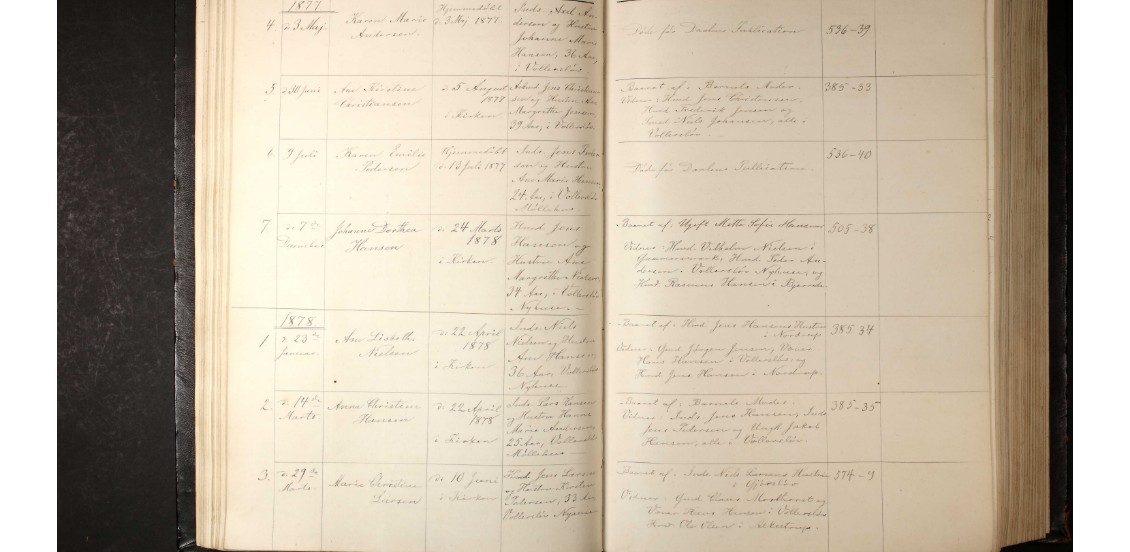 1877
4. d. 3 Maj.
Karen Marie
Andersen.
Hjemmedøbt
d. 3 Maj 1877.
Inds. Axel An-
dersen og Hustru
Johanne Marie
Hansen, 36 Aar,
i Vollerslöv.
Døde før Daabens Publication
536-39
5. d. 30 Juni
Ane Kirstine
Christiansen
d. 5 August
1877
i Kirken.
Jens Christian-
sen og Hustru Ane
Margrethe Jensen
39 Aar, i Vollerslöv.
Baaret af: Barnets Moder.
Vidner: Husmd. Jens Christensen,
Husmd. Frederik Jensen og
Niels Johansen, alle i
Vollerslöv.
385-33
6 9 Juli
Karen Emilie
Pedersen
Hjemmedøbt
d. 13 Juli 1877
Inds. Jens Peder-
sen og Hustru
Ane Marie Hansen
24 Aar, i Vollerslöv
Døde før Daabens Publication.
536-40
7. d. 7de
December
Johanne Dorthea
Hansen
d. 24 Marts
1878
i Kirken.
Husmd. Jens
Hansen og
Hustru Ane
Margrethe Nielsen,
34 Aar, i Vollerslöv
Nyhuse.
Baaret af: Ugift Mette Sofie Hansen
Vidner: Husmd. Vilhelm Nielsen i
Husmd. Peder An-
dersen i Vollerslöv Nyhuse, og
Husmd. Rasmus Hansen i
505-38
1878
1 d. 23de
Januar.
Ane Lisbeth
Nielsen
d. 22 April
1878
i Kirken
Inds. Niels
Nielsen og Hustru
Ane Hansen,
36 Aar, Vollerslöv
Nyhuse
Baaret af: Jens Hansens Hustru
i Nordrup.
Vidner: Jörgen Jensen,
Hans Hansen i Vollerslöv og
Husmd. Jens Hansen i Nordrup.
385 34
2. d. 14de
Marts
Anna Christine
Hansen
d. 22 April
1878
i Kirken
Inds. Lars Hansen
og Hustru Hanne
Marie Andersen
25 Aar, Vollerslöv
Baaret af: Barnets Moder.
Vidner: Inds. Jens Hansen, Inds.
Jens Pedersen og Ungk. Jakob
Hansen, alle i Vollerslöv.
385-35
3. d. 29de
Marts.
Marie Christine
Larsen
d. 10 Juni
i Kirken
Husmd. Jens Larsen
og Hustru Kirsten
Petersen, 33 Aar,
Vollerslöv Nyhuse
Baaret af: Inds. Niels Larsens Hustru
Vidner: Claus og
Hans Hansen i Vollerslöv
Ole Olsen i
374-9